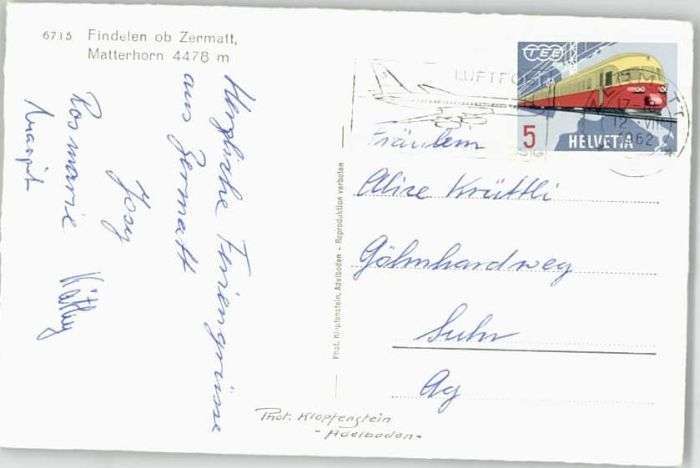 6715 Findelen ob Zermatt,
Matterhorn 4478 m
Herzliche Feriengrüsse
aus Zermatt
Josy
Rosmarie
Margrit
Phot. Klopfenstein, Adelboden - Reproduktion verboten
LUFTPOST
TEE
5
HELVETIA
17
12. VII
1962
Fräulein
Alice Krüttli
Göhnhardweg
Suhr
Ag
Phot. Klopfenstein
- Adelboden -